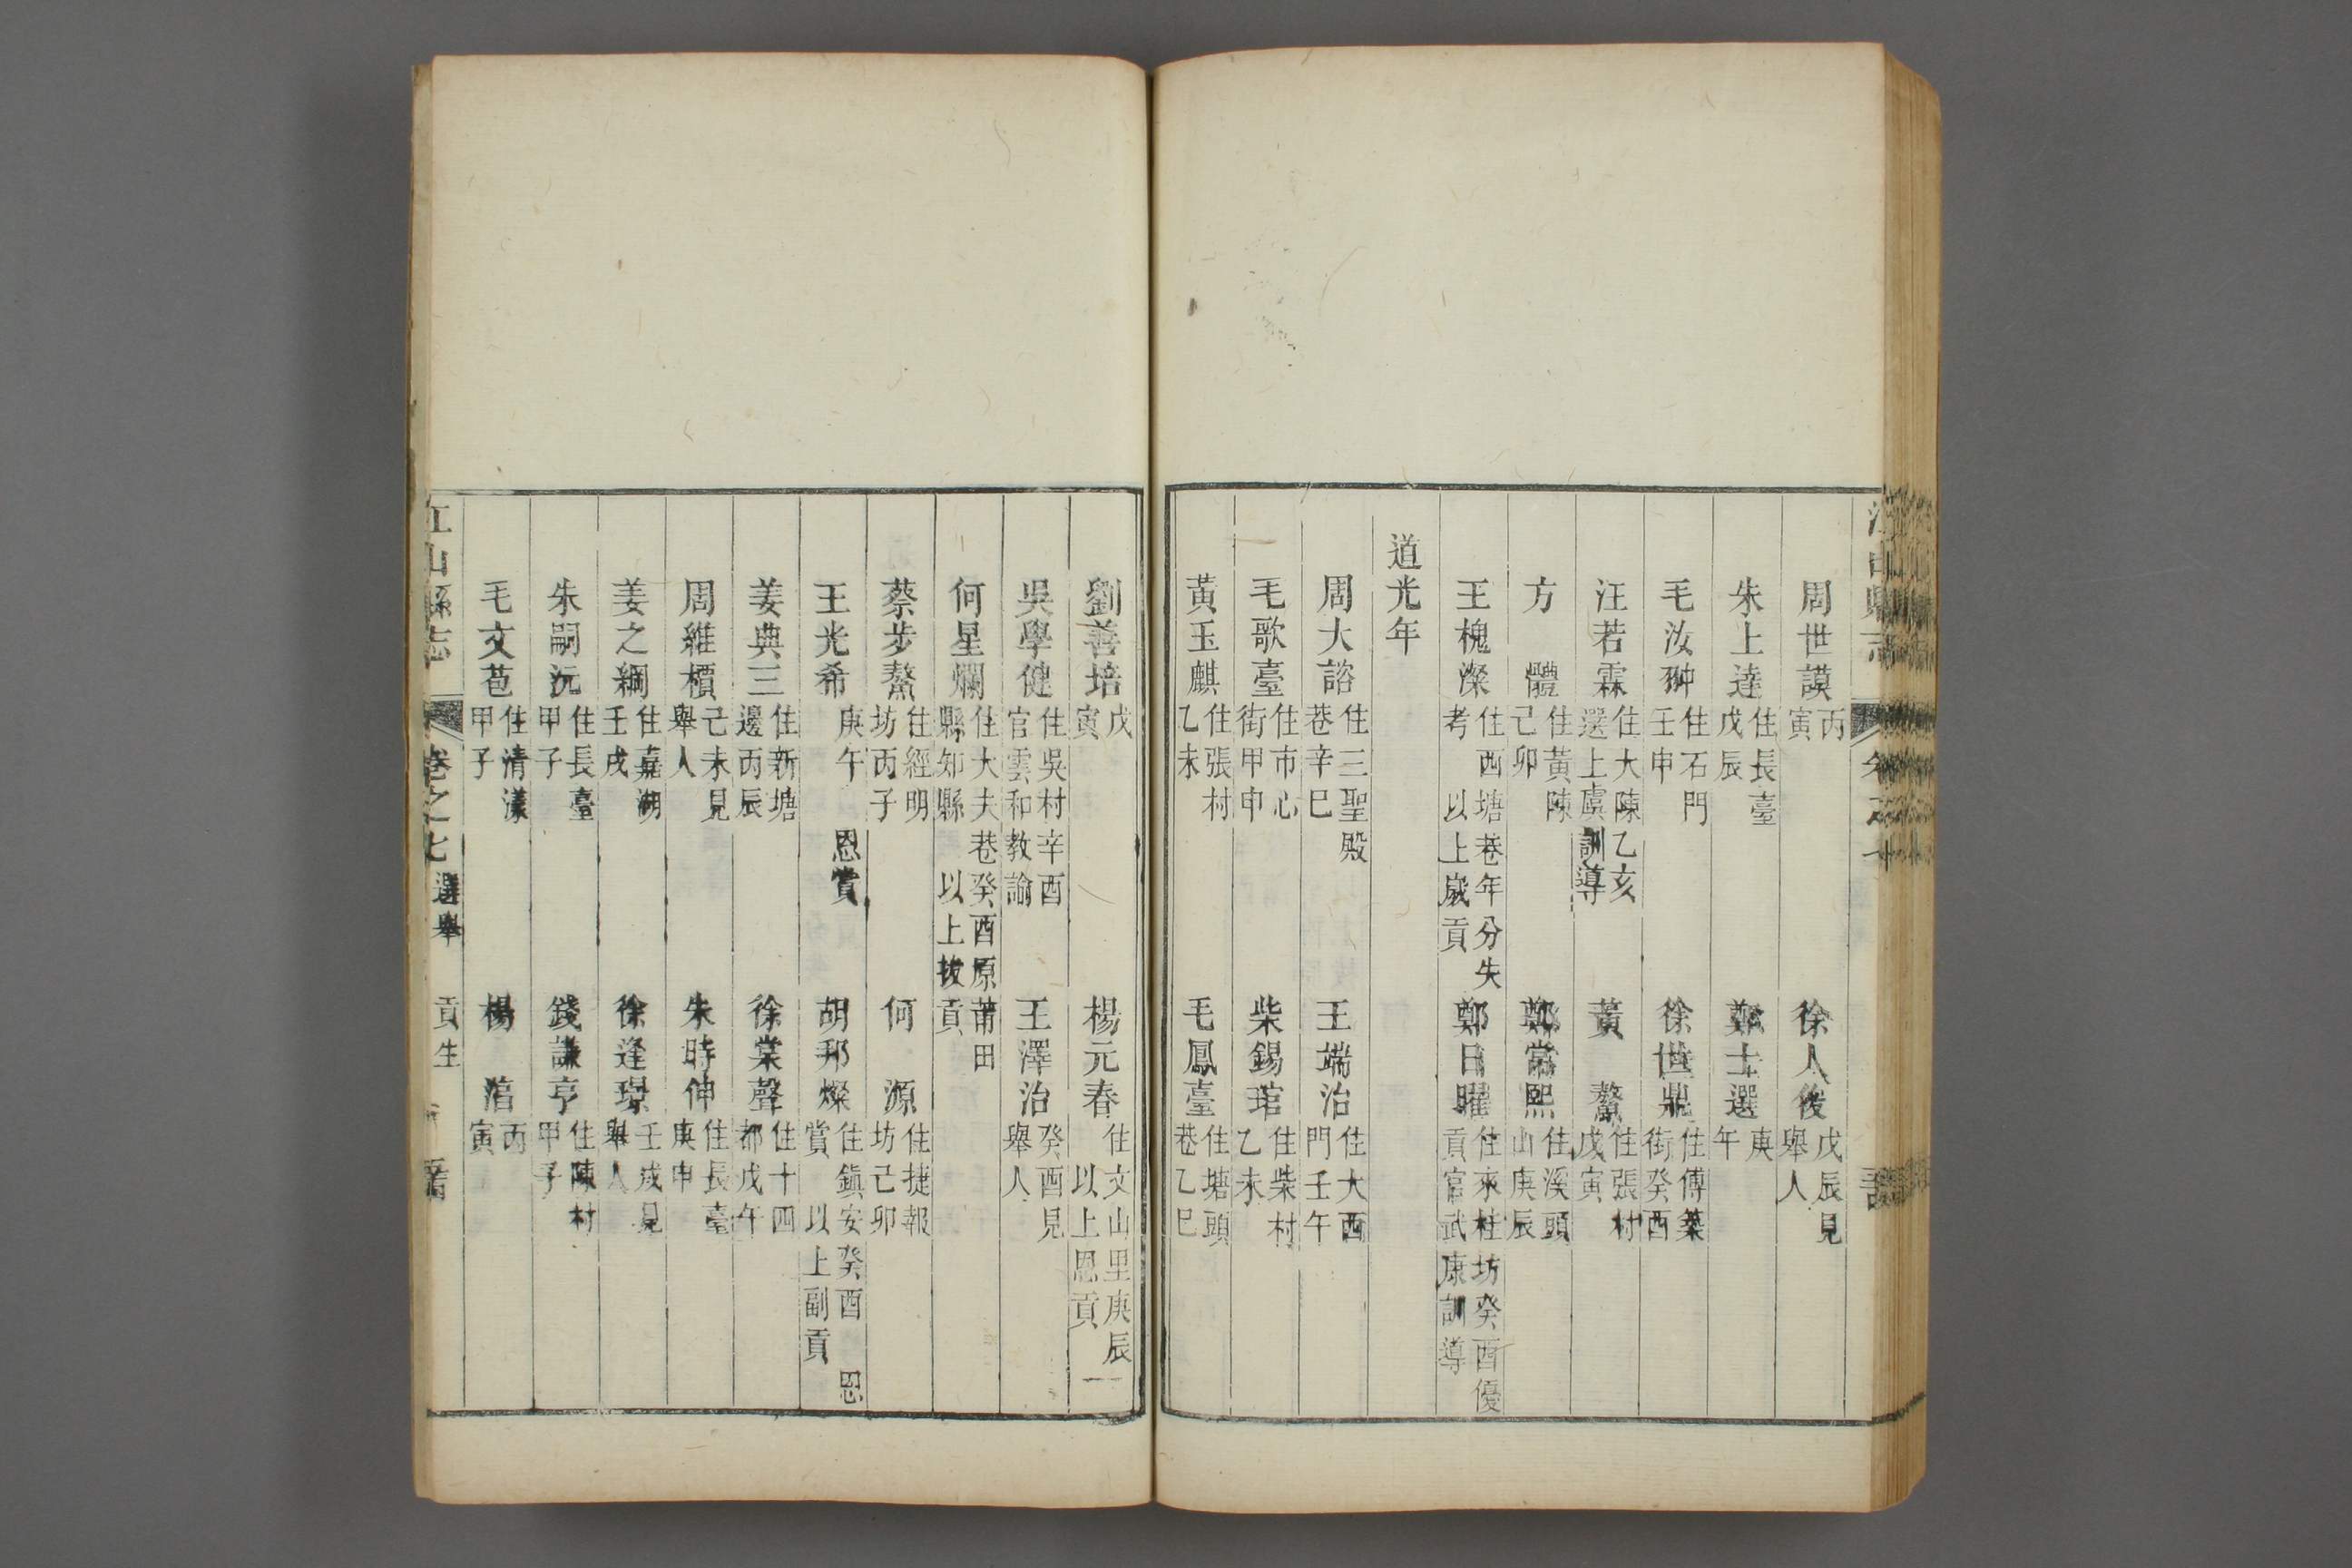 周世謨丙寅　徐人後戊辰見舉人
朱上達住長臺戊辰　鄭士選庚午
毛汝翀住石門壬申　徐世鼎住傅築街癸酉
汪若霖住大陳乙亥選上虞訓導　黃鰲住張村戊寅
方體住黃陳己卯　鄭常熙住溪頭山庚辰
王槐濼住西塘巷年分失考　以上歲貢　鄭日曜住來桂坊癸酉優貢官武康訓導
道光年
周大諮住三聖殿巷辛巳　王端治住大西門壬午
毛歌臺住市心街甲申　柴錫琯住柴村乙未
黃玉麒住張村乙未　毛鳳臺住塘頭巷乙巳
劉善培戊寅　楊元春住文山里庚辰　以上恩貢
吳學健住吳村辛酉官雲和教諭　王澤治癸酉見舉人
何星爛住大夫巷癸酉原莆田縣知縣　以上拔貢
蔡步鰲住經明坊丙子　何源住捷報坊己卯
王光希庚午　恩賞　胡邦燦住鎮安癸酉　恩賞　以上副貢
姜典三住新塘邊丙辰　徐棠聲住十四都戊午
周維檟己未見舉人　朱時伸住長臺庚申
姜之綱住嘉湖壬戌　徐逢璟壬戌見舉人
朱嗣沅住長臺甲子　錢謙亨住陳村甲子
毛文苞住清漾甲子　楊湝丙寅
江山縣志　卷之七　選舉　貢生